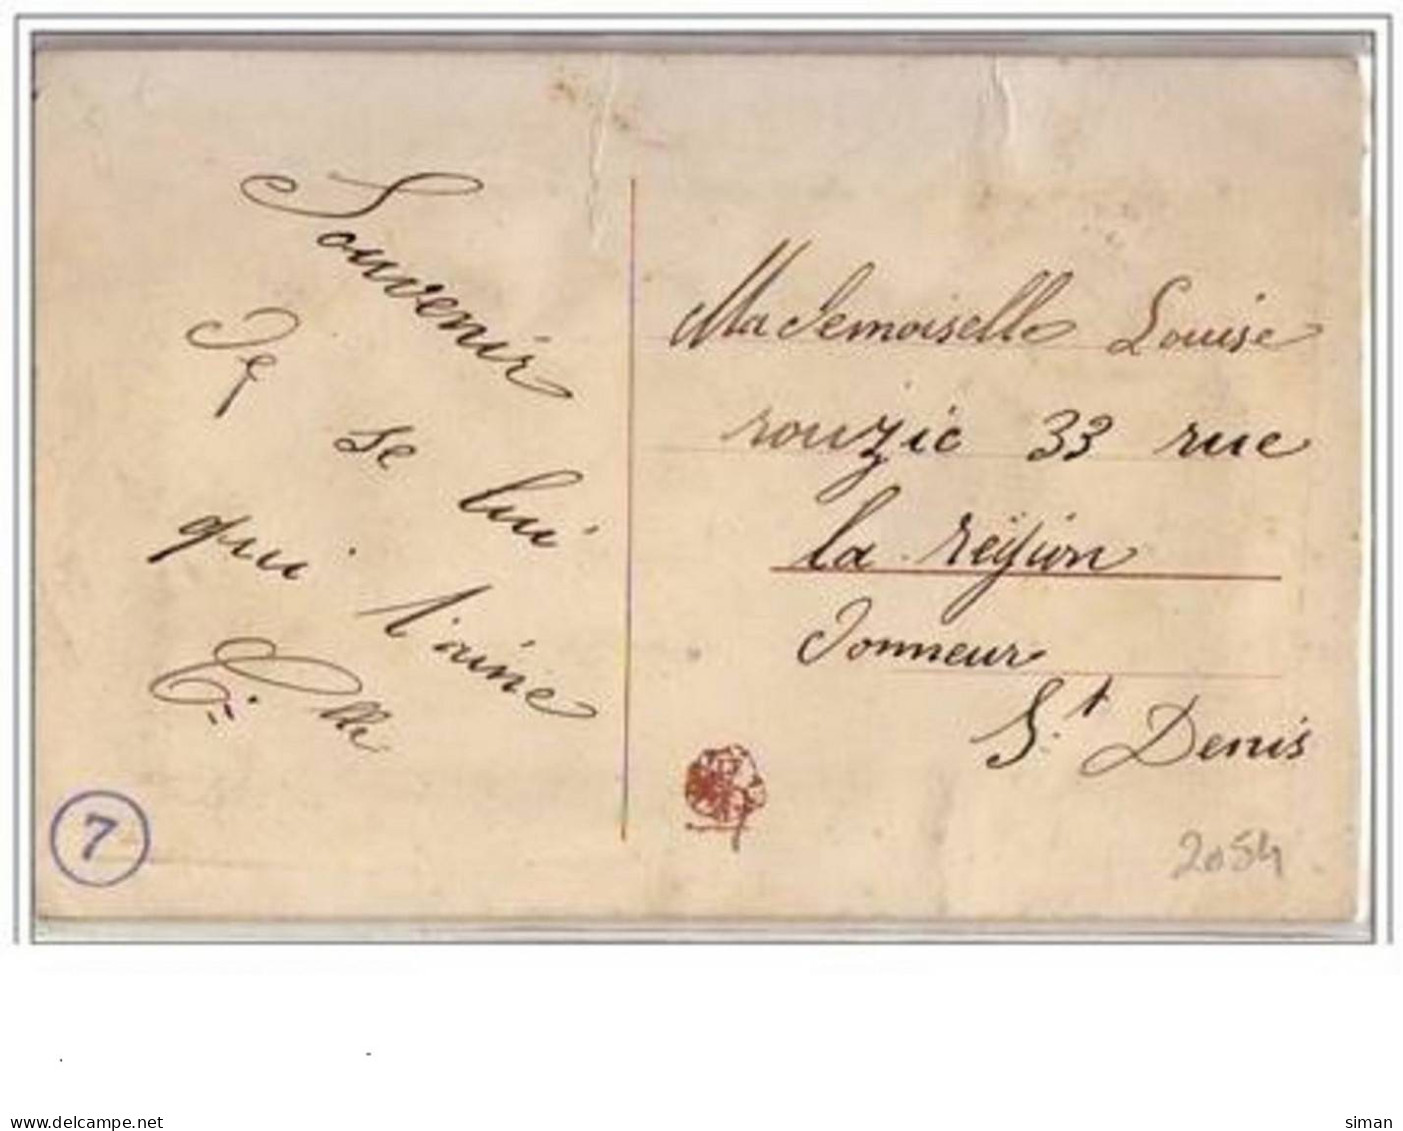 Souvenir
de se lui
qui l'aime
Mademoiselle Louise
rouzic 33 rue
la région
Donneur
St Denis
7
2054
delcampe.net
siman